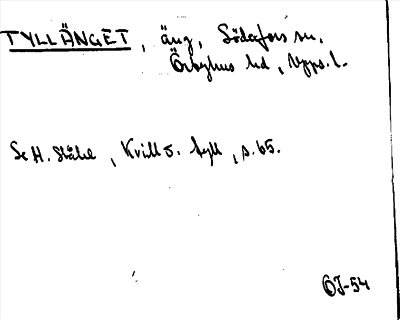 TYLLÄNGET, äng, Söderfors sn.
Örbyhus hd, Upps. l.
Se H. Ståhl, Kvill o. tyll, s. 65.
OJ-54